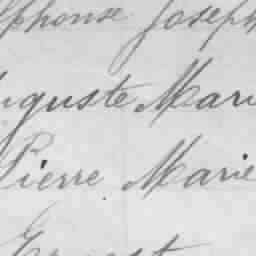 lphonse Joseph
uguste Mari
Pierre. Marie
Ernest